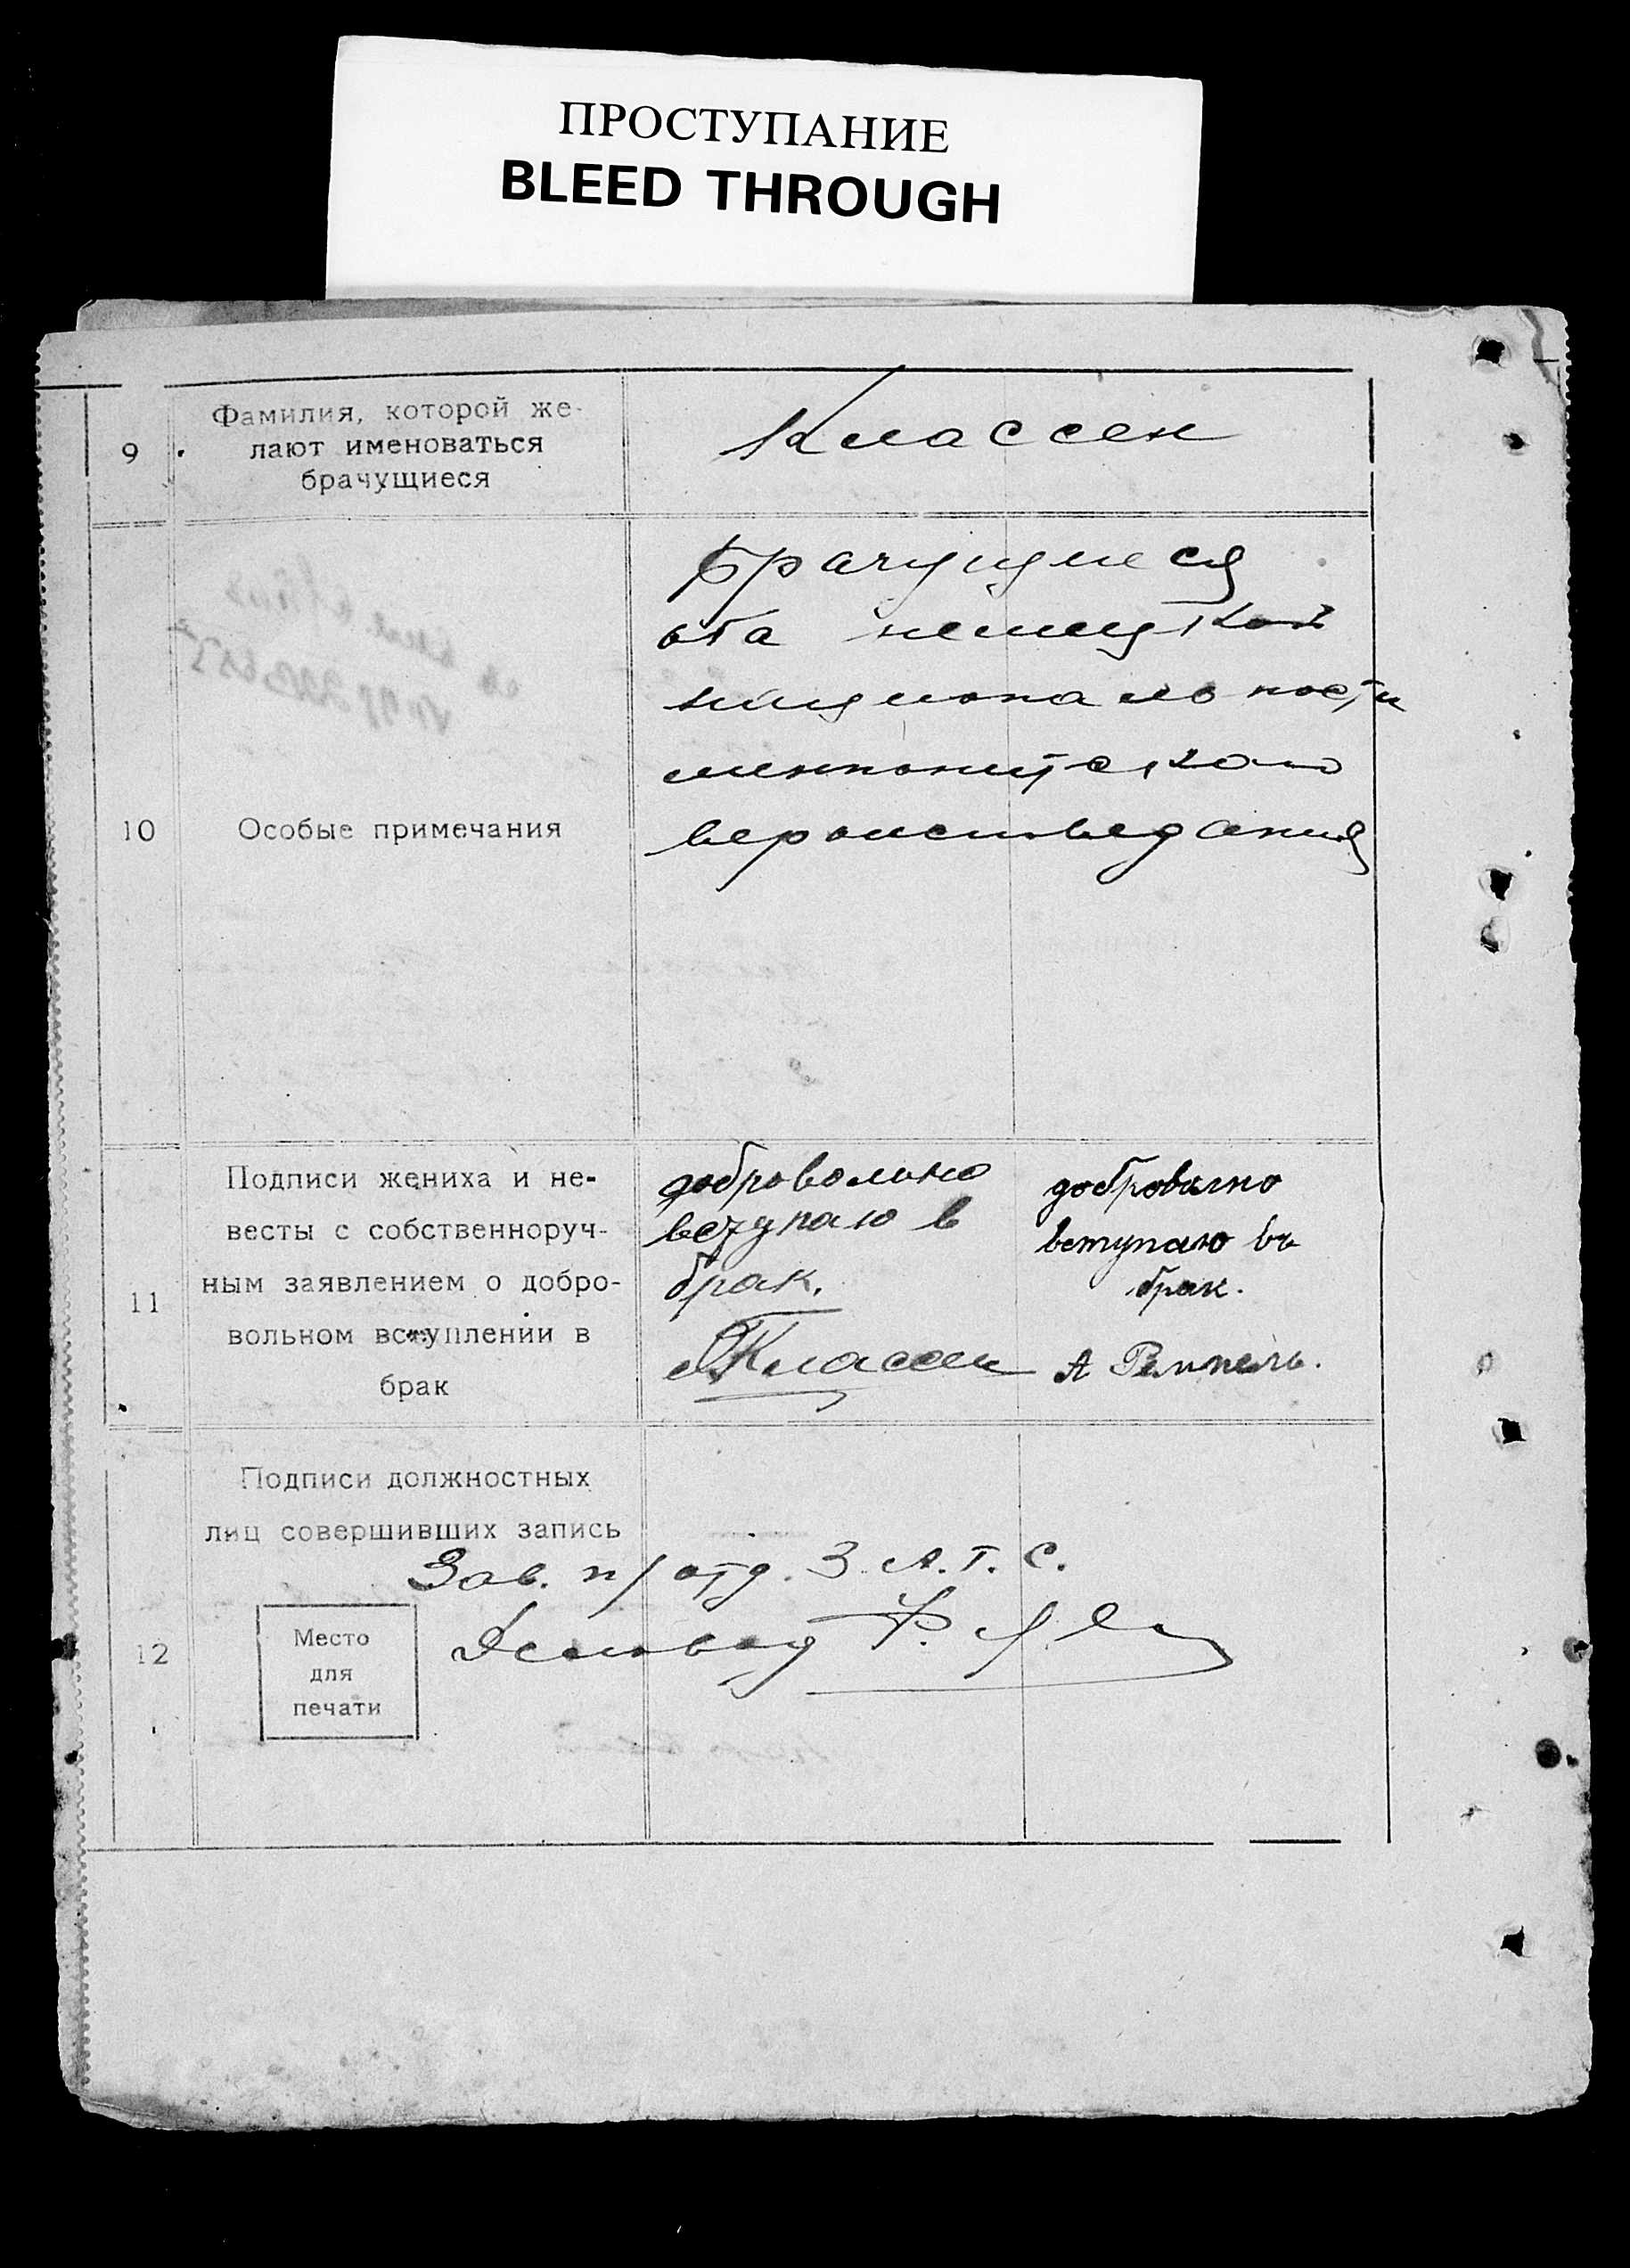 ПРОСТУПАНИЕ
BLEED THROUGH
9
Фамилия, которой же-
лают именоваться
брачущиеся
Классен
10
Особые примечания
Брачущиеся
оба немецкой
национальности
меннонитского
вероисповедания
11
Подписи жениха и не-
весты с собственноруч-
ным заявлением о добро-
вольном вступлении в
брак
добровольно
вступаю в
брак.
Классен
доброволно
вступаю въ
брак.
А Ремпель.
12
Подписи должностных
лиц совершивших запись
Зав. п/отд. З.А.Г.С.
Место
для
печати